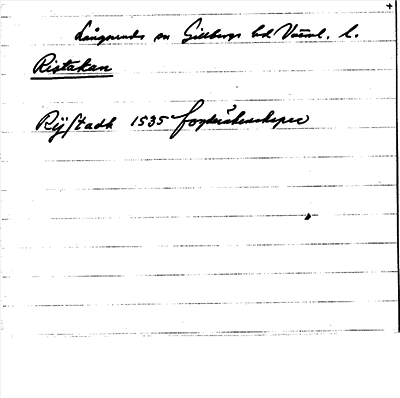 Långseruds sn Gillbergs hd Värml. l.
Ristakan
Rijstadh 1535 fogderäkenskaper